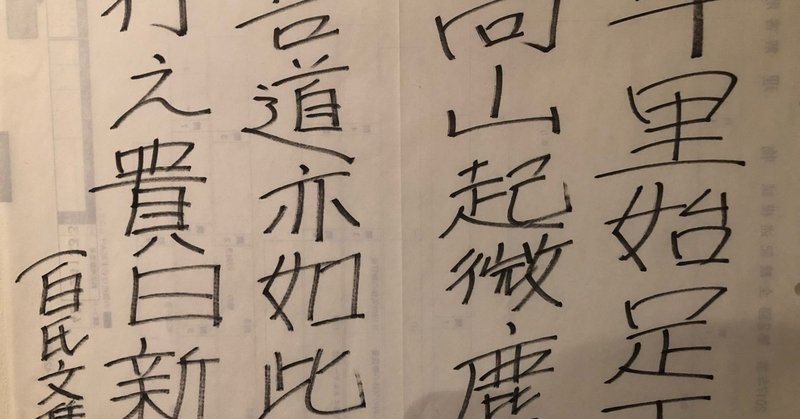 千里始足下
高山起微塵
吾道亦如此
行之貴日新
(白氏文集